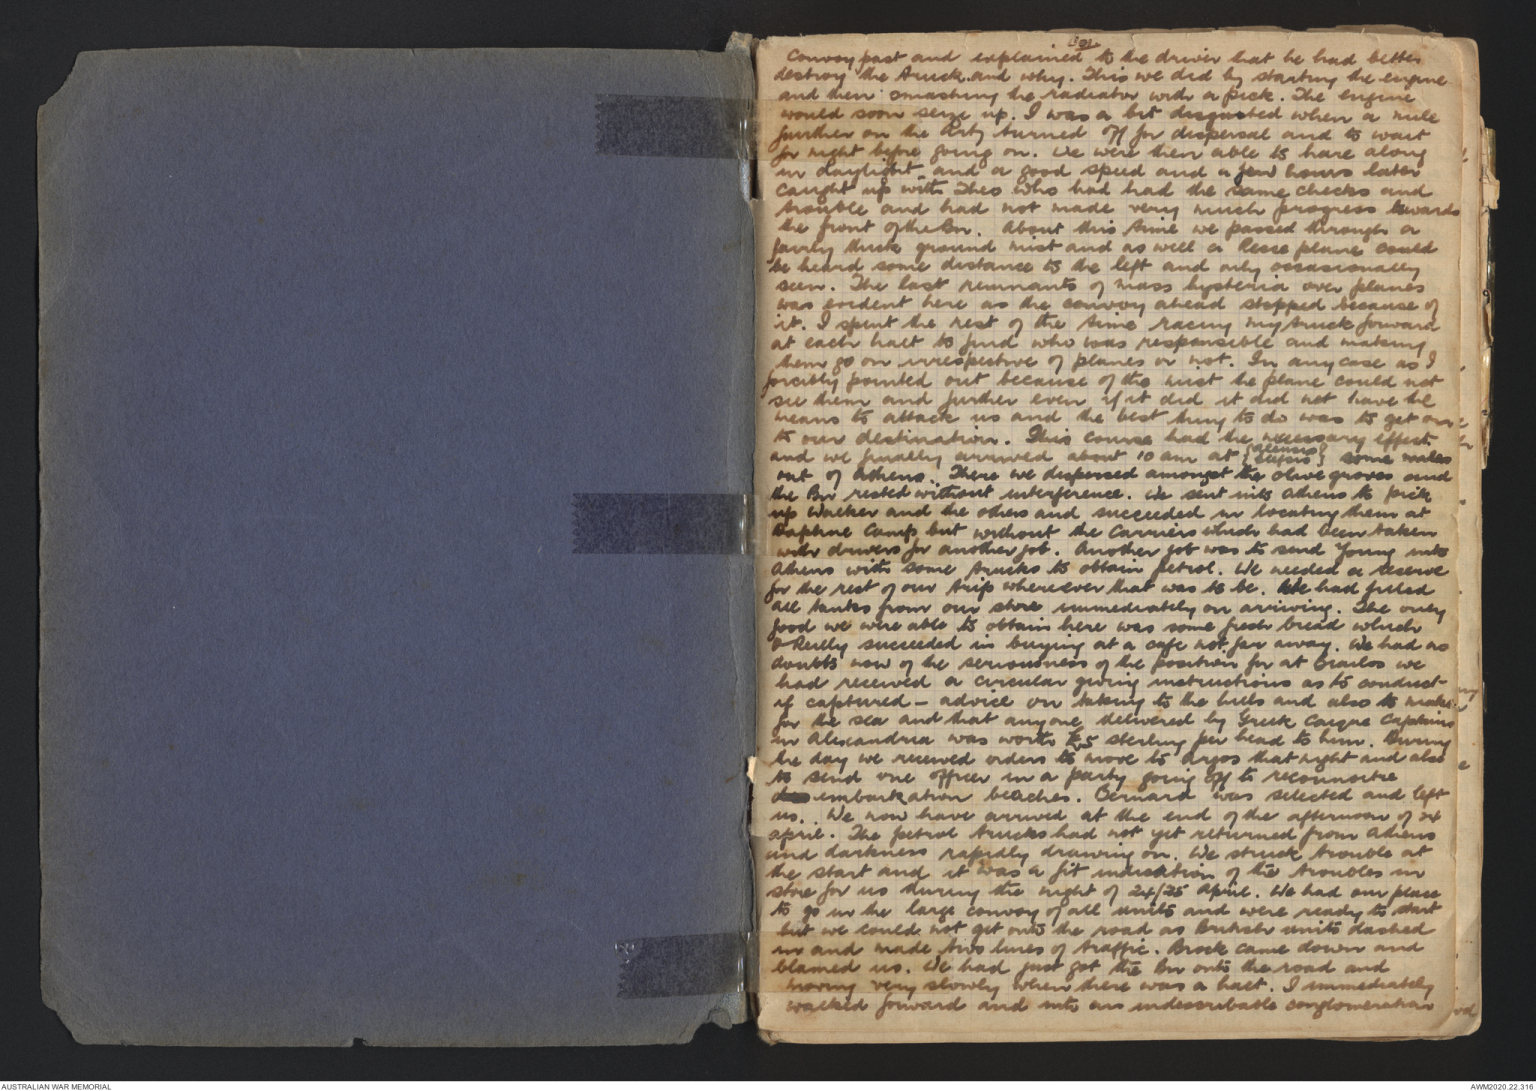 convoy past and explained to the driver that he had better
destroy the truck and why. This we did by starting the engine
and then smashing the radiator with a pick. The engine
would soon seize up. I was a bit disgusted when a mile
further on the Arty turned off for dispersal and to wait
for night before going on. We were then able to hare along
in daylight and a good speed and a few hours later
caught up with Theo who had had the same checks and
trouble and had not made very much progress towards
the front of the Bn. About this time we passed through a
fairly thick ground mist and as well a Recce plane could
be heard some distance to the left and only occasionally
seen. The last remnants of mass hysteria over planes
was evident here as the convoy ahead stopped because of
it. I spent the rest of the time racing my truck forward
at each halt to find who was responsible and making
them go on irrespective of planes or not. In any case as I
forcibly pointed out because of the mist the plane could not
see them and further even if it did it did not have the
means to attack us and the best thing to do was to get on
to our destination. This course had the necessary effect
and we finally arrived about 10 am at some miles
out of Athens. There we dispersed amongst the olive groves and
the Bn rested without interference. We sent into Athens to pick
up Walker and the others and succeeded in locating them at
Daphne Camp but without the Carriers which had been taken
with drivers for another job. Another job was to send Young into
Athens with some trucks to obtain petrol. We needed a reserve
for the rest of our trip wherever that was to be. We had filled
all tanks from our store immediately on arriving. The only
food we were able to obtain here was some fresh bread which
O'Reilly succeeded in buying at a cafe not far away. We had no
doubts now of the seriousness of the position for at Brailos we
had received a circular giving instructions as to conduct
if captured - advice on taking to the hills and also to make
for the sea and that anyone delivered by Greek Caique Captains
in Alexandria was worth £5 sterling per head to him. During
the day we received orders to move to Argos that night and also
to send one officer in a party going off to reconnoitre
embarkation beaches. Bernard was selected and left
us. We now have arrived at the end of the afternoon of 24
April. The petrol trucks had not yet returned from Athens
and darkness rapidly drawing on. We struck trouble at
the start and it was a fit indication of the troubles in
store for us during the night of 24/25 April. We had our place
to go in the large convoy of all units and were ready to start
but we could not get onto the road as British units dashed
in and made two lines of traffic. Brock came down and
blamed us. We had just got the Bn onto the road and
moving very slowly when there was a halt. I immediately
walked forward and into an indescribable conglomeration
AUSTRALIAN WAR MEMORIAL
AWM2020.22.316